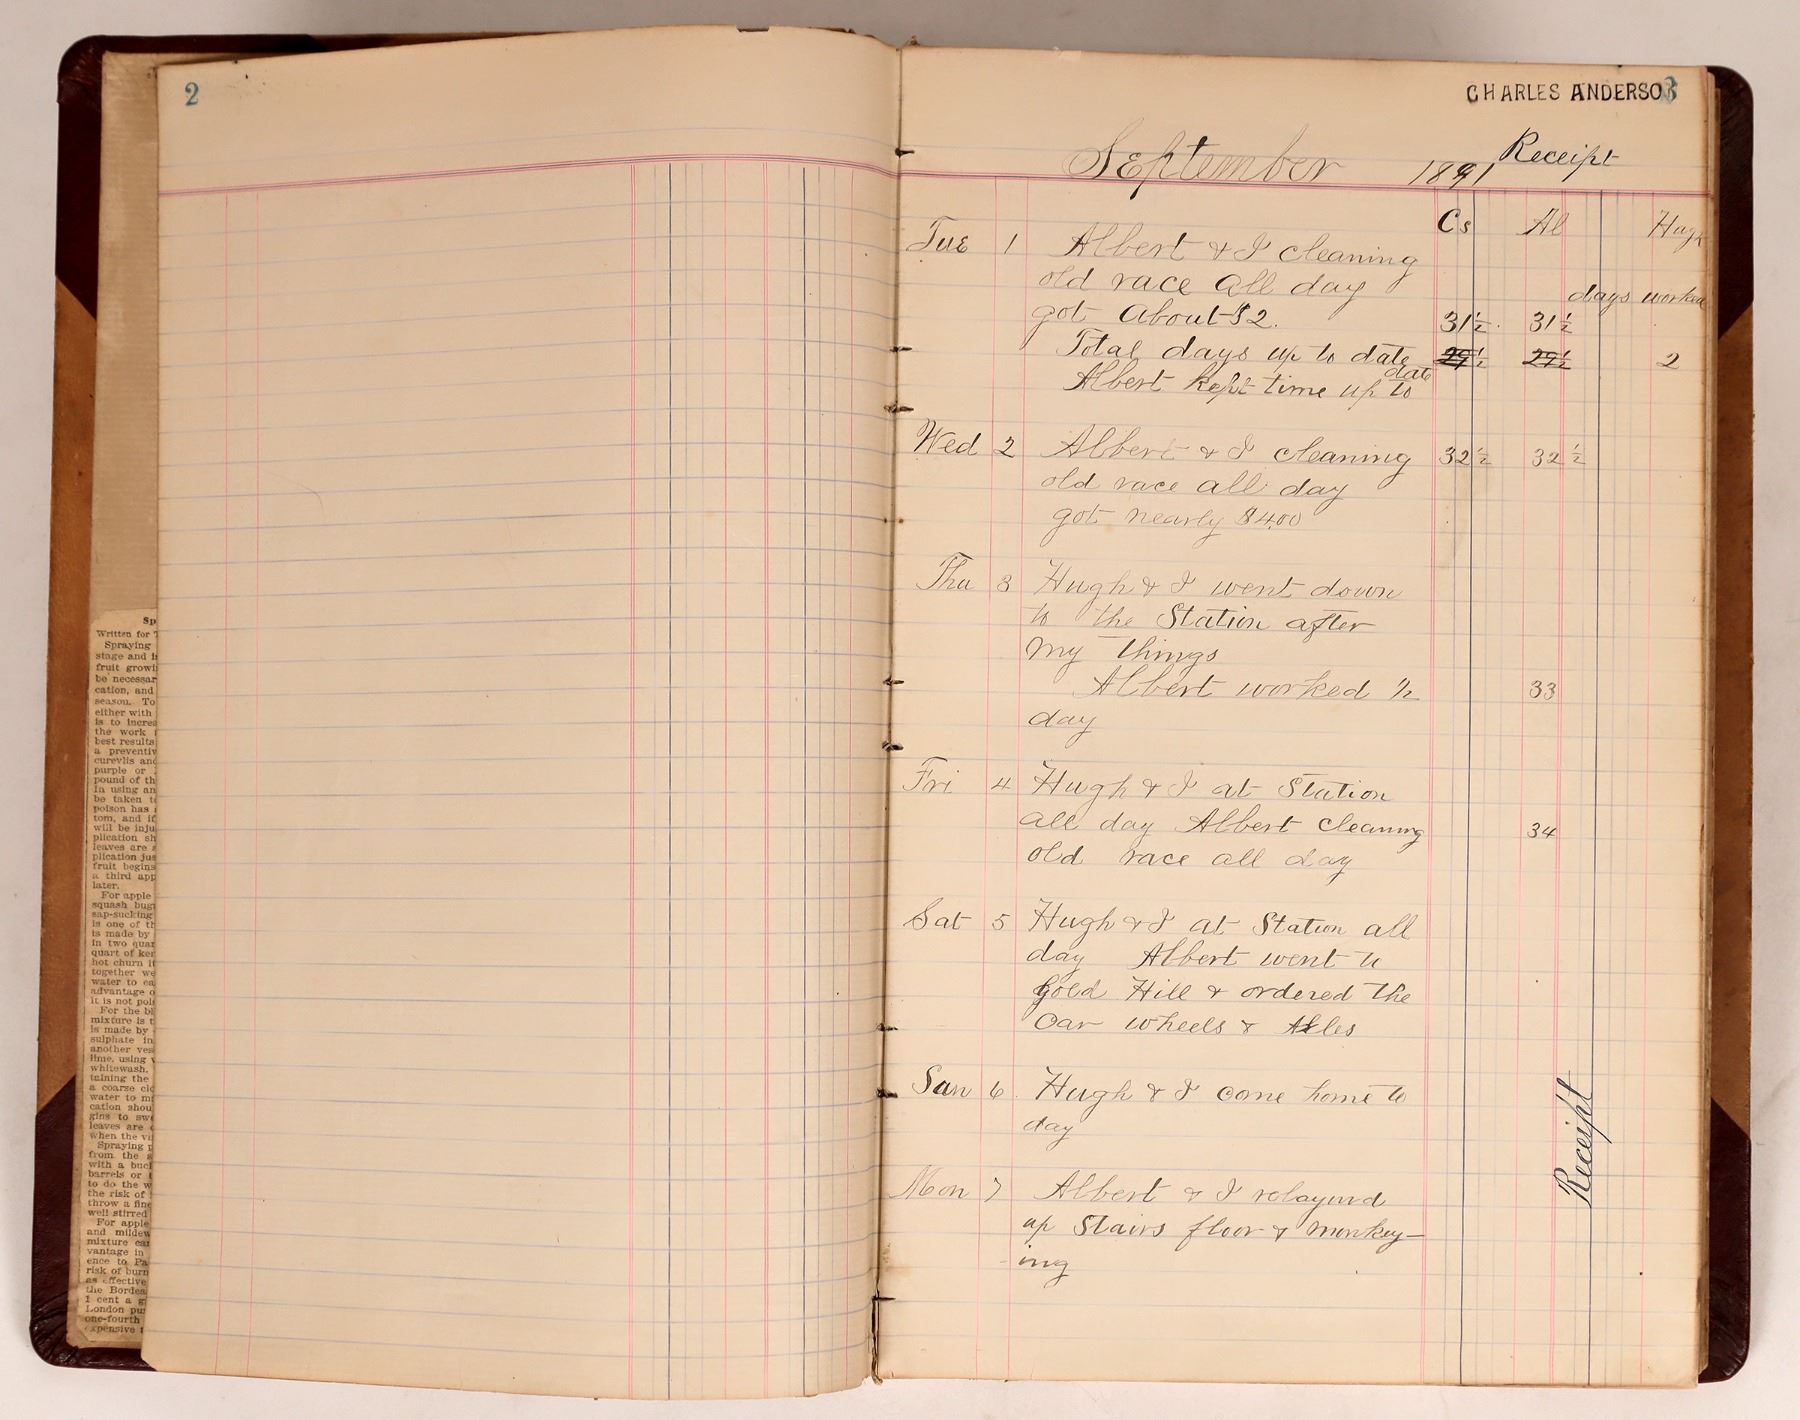 2
Sp
Written for T
Spraying
stage and i
fruit growi
be necessar
cation, and
season. To
either with
is to increa
the work
best results
a preventiv
curevlis and
purple or
pound of th
In using an
be taken t
poison has
tom, and if
will be inju
plication sh
leaves are
plication jus
fruit begins
a third app
later.
For apple
squash bug
sap-sucking
is one of th
is made by
in two quar
quart of ker
hot churn it
together we
water to ea
advantage o
it is not pois
For the bl
mixture is t
is made by
sulphate in
another ves
lime, using
whitewash.
taining the
a coarse clo
water to m
cation shou
gins to swe
leaves are
when the vi
Spraying p
from the s
with a buc
barrels or
to do the w
the risk of
throw a fine
well stirred
For apple
and mildew
mixture ca
vantage in
ence to Pa
risk of burn
as effective
the Bordea
1 cent a g
London pu
one-fourth
expensive
CHARLES ANDERSO
3
September 1891 Receipt
Cs Al Hugh
Tue 1 Albert & I cleaning
old race all day
days worked
got About $2. 31½ 31½
Total days up to date 29½ 29½ 2
Albert kept time up to date
Wed 2 Albert & I cleaning 32½ 32½
old race all day
got nearly $4.00
Thu 3 Hugh & I went down
to the Station after
my things
Albert worked ½ 33
day
Fri 4 Hugh & I at Station
all day Albert cleaning 34
old race all day
Sat 5 Hugh & I at Station all
day Albert went to
Gold Hill & ordered the
Car wheels & Axles
Sun 6 Hugh & I come home to
day
Receipt
Mon 7 Albert & I
up Stairs floor & monkey-
ing